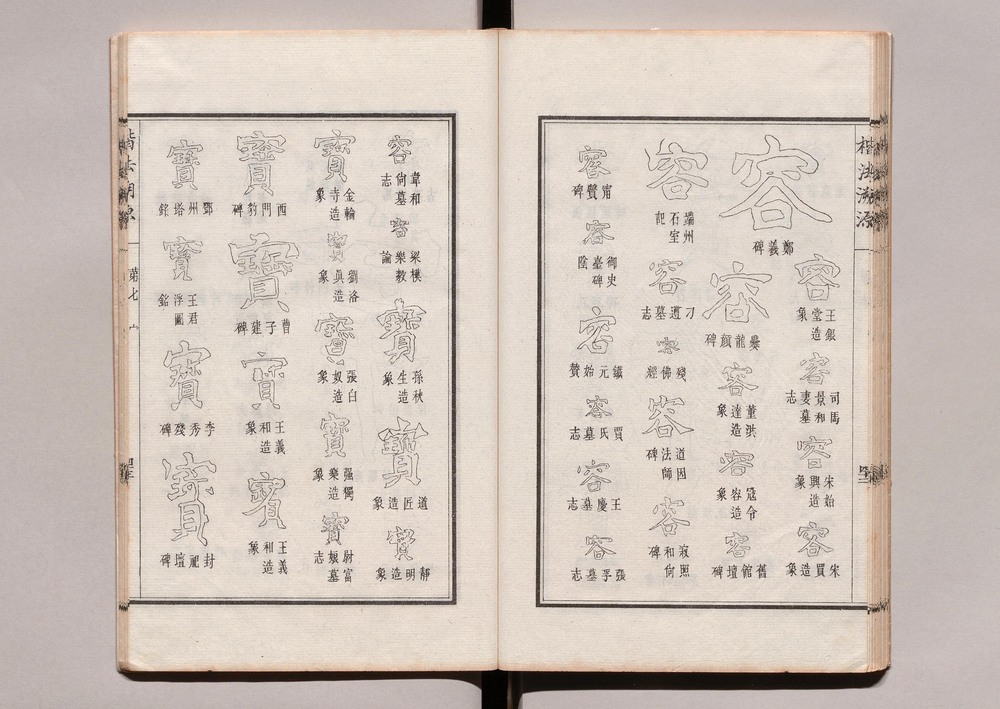 楷法溯源
容 鄭羲碑
容 爨龍顏碑
容 王銀堂造象
容 司馬景和妻墓志
容 董洪達造象
容 宋始興造象
容 寇令容造象
容 宋買造象
容 舊館壇碑
容 端州石室記
容 刁遵墓志
容 殘佛經
容 道因法師碑
容 寂照和尚碑
容 甯贙碑
容 御史臺碑陰
容 鐵元始贊
容 賈氏墓志
容 王慶墓志
容 張孚墓志
容 韋和尙墓志
容 梁模樂毅論
寶 孫秋生造象
寶 道匠造象
寶 靜明造象
寶 金輪寺造象
寶 劉洛眞造象
寶 張白奴造象
寶 强獨樂造象
寶 尉富娘墓志
寶 西門豹碑
寶 曹子建碑
寶 王義和造象
寶 王義和造象
寶 鄧州塔銘
寶 王君浮圖銘
寶 李秀殘碑
寶 封祀壇碑
楷法溯源
第七